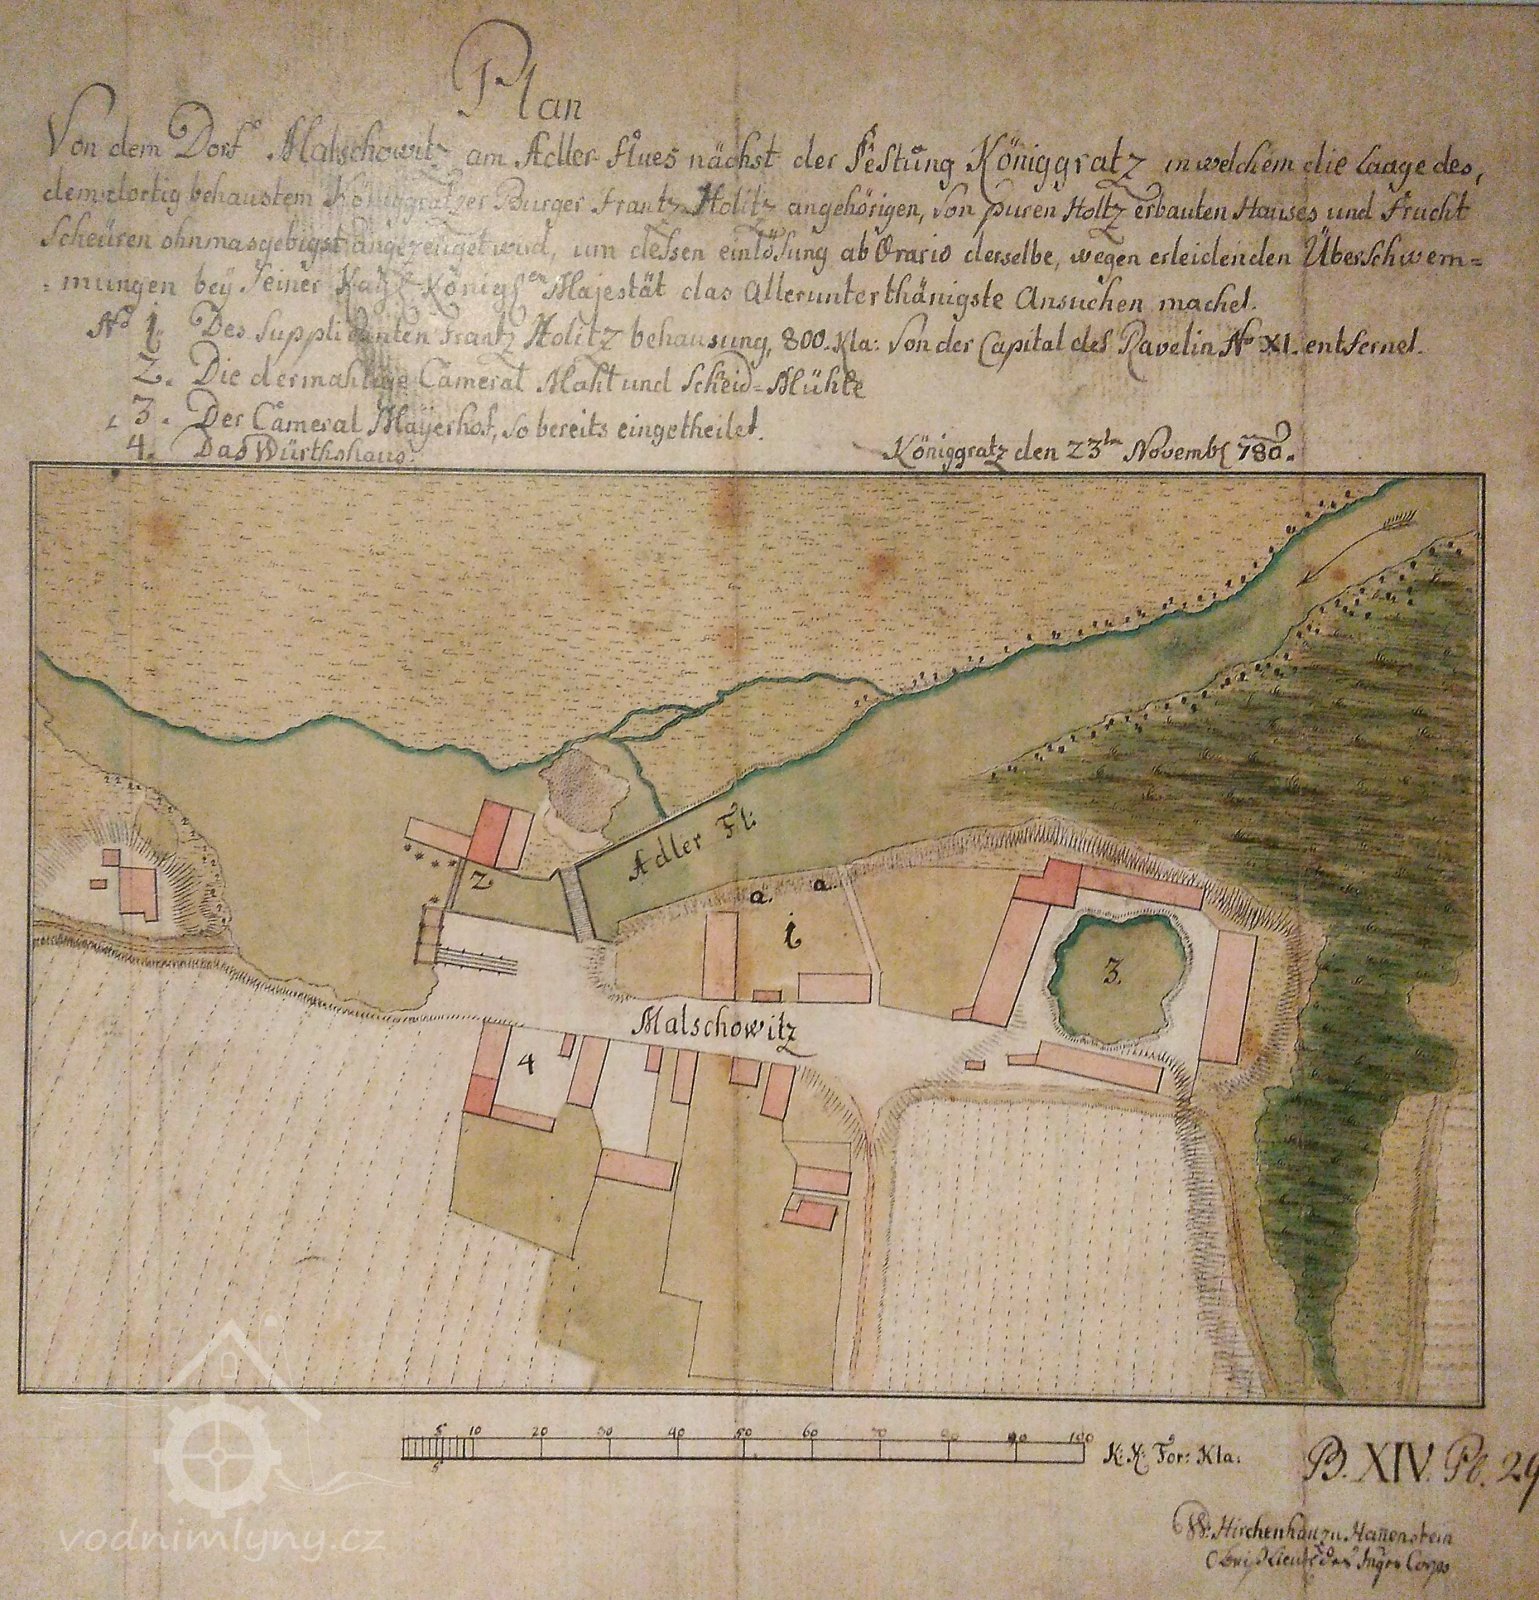 Plan
Von dem Dorf Malschowitz am Adler flues nächst der Festung Königgratz in welchem die Laage des,
demselortig behaustem Königgratzer Burger Frantz Holitz angehörigen, Von puren Holtz erbauten Hauses und Frucht
Scheüren ohnmasgebigst angezeuget wird, um dessen einlösung ab Ærario derselbe, wegen erleidenden Überschwem=
=mungen beÿ Seiner Kaÿs. Königl.en Majestät das Allerunterthänigste Ansuchen machet.
No 1. Des Supplicanten Frantz Holitz behausung, 800. Kla: Von der Capital des Ravelin No XI. entfernet.
2. Die dermahlige Cameral Mahl und Scheid=Mühle
3. Der Cameral Mayerhof, so bereits eingetheilet.
4. Das Würthshaus.
Königgratz den 23ten Novemb. 780.
Adler Fl:
2
a. a.
1
3.
Malschowitz
4
5 10 20 30 40 50 60 70 80 90 100 K: K: For: Kla:
5
B. XIV. Pl. 29
W: Hirchenhan zu Hanenstein
Obrist Lieut. des Ingen Corps
vodnimlyny.cz